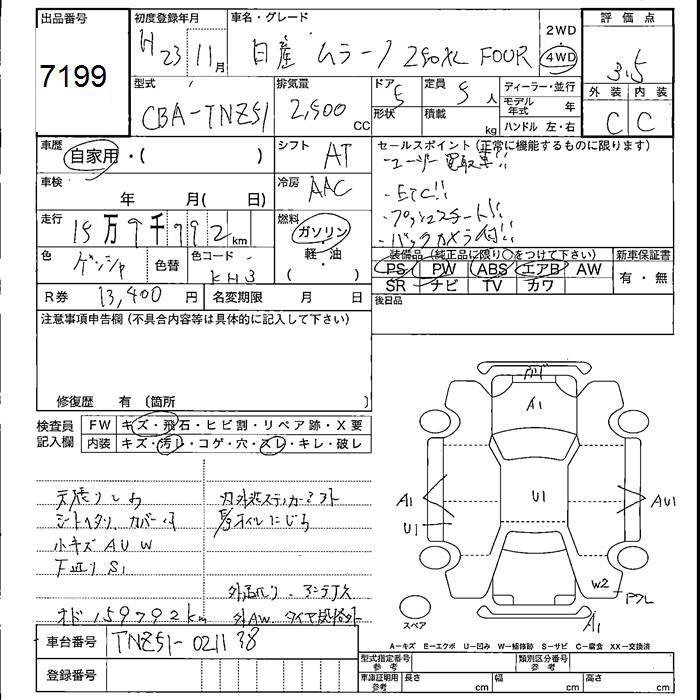 出品番号 初度登録年月 車名・グレード 評価点
7199 H23 11月 日産 ムラーノ 250XL FOUR 2WD 4WD 3.5
型式 排気量 ドア 5 定員 5人 ディーラー・並行 外装 内装
CBA-TNZ51 2,500 CC 形状 積載 kg モデル年式 年 C C
ハンドル 左・右
車歴 自家用・( ) シフト AT セールスポイント (正常に機能するものに限ります)
・ユーザー買取車!!
車検 年 月( 日) 冷房 AAC ・ETC!!
・プッシュスタート!!
走行 15万9千792km 燃料 ガソリン ・バックカメラ付!!
軽・油
( )
色 ゲンシャ 色替 色コード KH3 装備品 (純正品に限り○をつけて下さい) 新車保証書
PS PW ABS エアB AW 有・無
SR ナビ TV カワ
R券 13,400円 名変期限 月 日 後日品
注意事項申告欄 (不具合内容等は具体的に記入して下さい)
修復歴 有 〔箇所 〕
検査員記入欄 FW キズ・飛石・ヒビ割・リペア跡・X要
内装 キズ・汚レ・コゲ・穴・スレ・キレ・破レ
天張りしわ
シートヘタリ、カバー
小キズ AU W
下廻り S1
オド 159792km
車台番号 TNZ51-021138
登録番号
A1
U1
A1
U1
AU1
W2
A1
スペア
A-キズ E-エクボ U-凹み W-補修跡 S-サビ C-腐食 XX-交換済
型式指定番号 参考 類別区分番号 参考
車庫証明用 参考 長さ cm 幅 cm 高さ cm